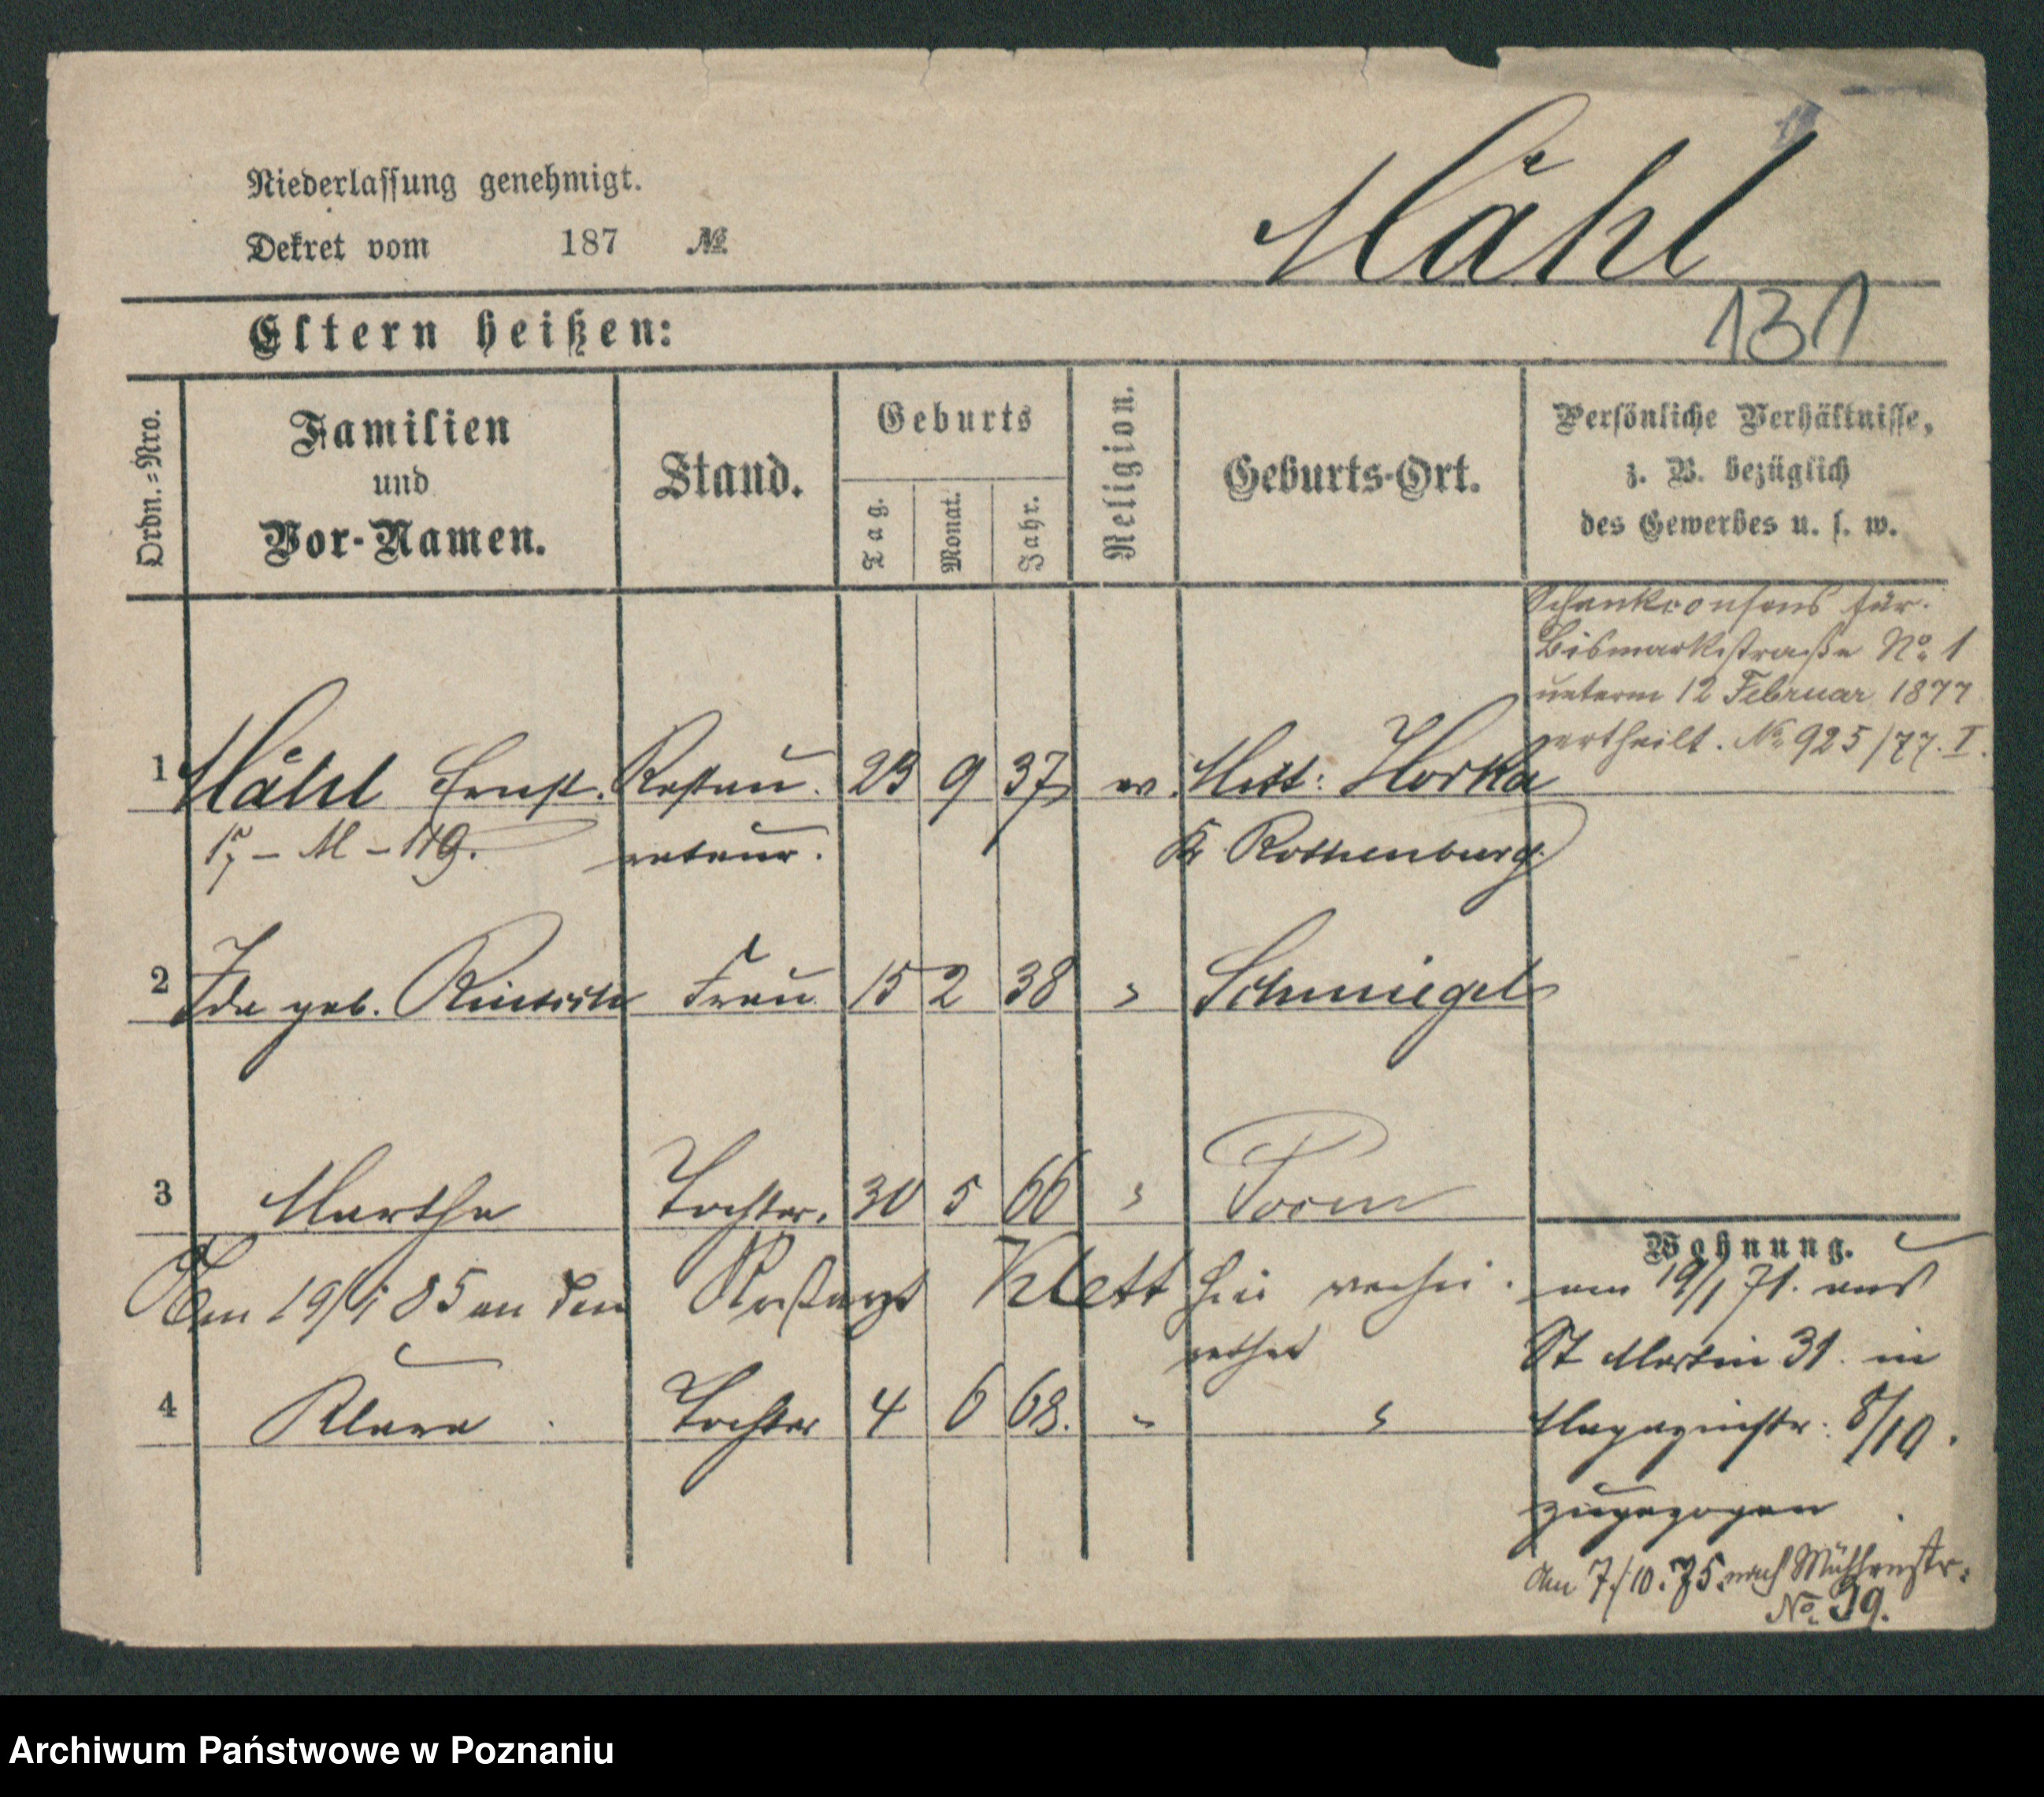 Niederlassung genehmigt.
Dekret vom 187 №
Mähl
131
Eltern heißen:
Ordn.-Nro.
Familien
und
Vor-Namen.
Stand.
Geburts
Tag.
Monat.
Jahr.
Religion.
Geburts-Ort.
Persönliche Verhältnisse,
z. B. bezüglich
des Gewerbes u. s. w.
Schankconsens für
Bismarkstraße No 1
unterm 12 Februar 1877
ertheilt. No 925/77. I.
1 Mähl Ernst. Restau 23 9 37 ev. Horka
- M - 119. rateur. Kr Rothenburg
2 Ida geb. Frau 15 2 38 " Schmiegel
3 Martha Tochter. 30 5 66 " Posen
Am 19/ 85 an den Roßarzt Klett hier verhei
rathet
4 Klara Tochter 4 6 68. " "
Wohnung.
am 19/1 71. aus
St Martin 31. in
Magazinstr. 8/10.
zugezogen
Am 7./10. 75. nach Mühlenstr.
No. 39.
Archiwum Państwowe w Poznaniu